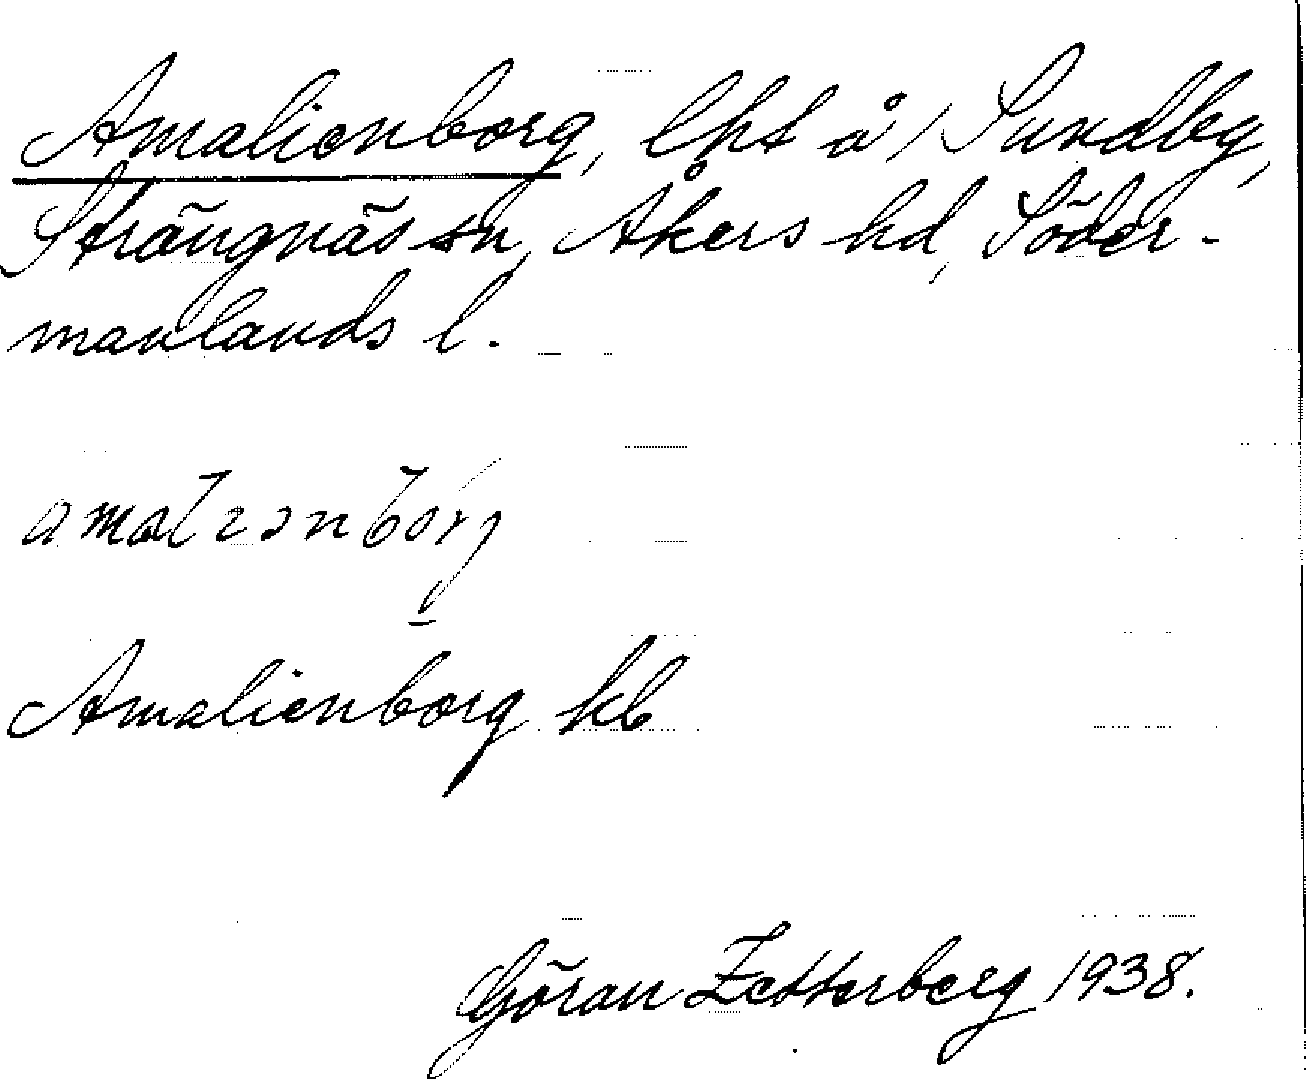 Amalienborg, lht å / Sundby,
Strängnäs sn, Åkers hd, Söder-
manlands l.
Amalienborg kb
Göran Zetterberg 1938.